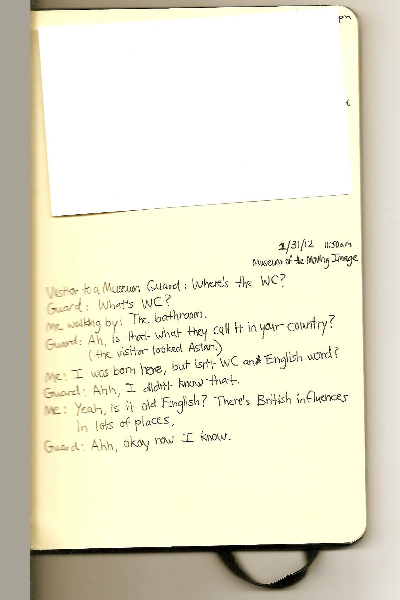 pm
1/31/12 11:50am
Museum of the Moving Image
Visitor to a Museum Guard: Where's the WC?
Guard: What's WC?
Me walking by: The bathroom.
Guard: Ah, is that what they call it in your country?
(the visitor looked Asian)
Me: I was born here, but isn't WC an English word?
Guard: Ahh, I didn't know that.
Me: Yeah, is it old English? There's British influences
in lots of places.
Guard: Ahh, okay now I know.